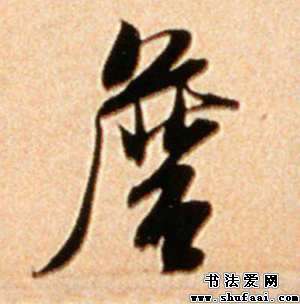 詹
书法爱网
www.shufaai.com